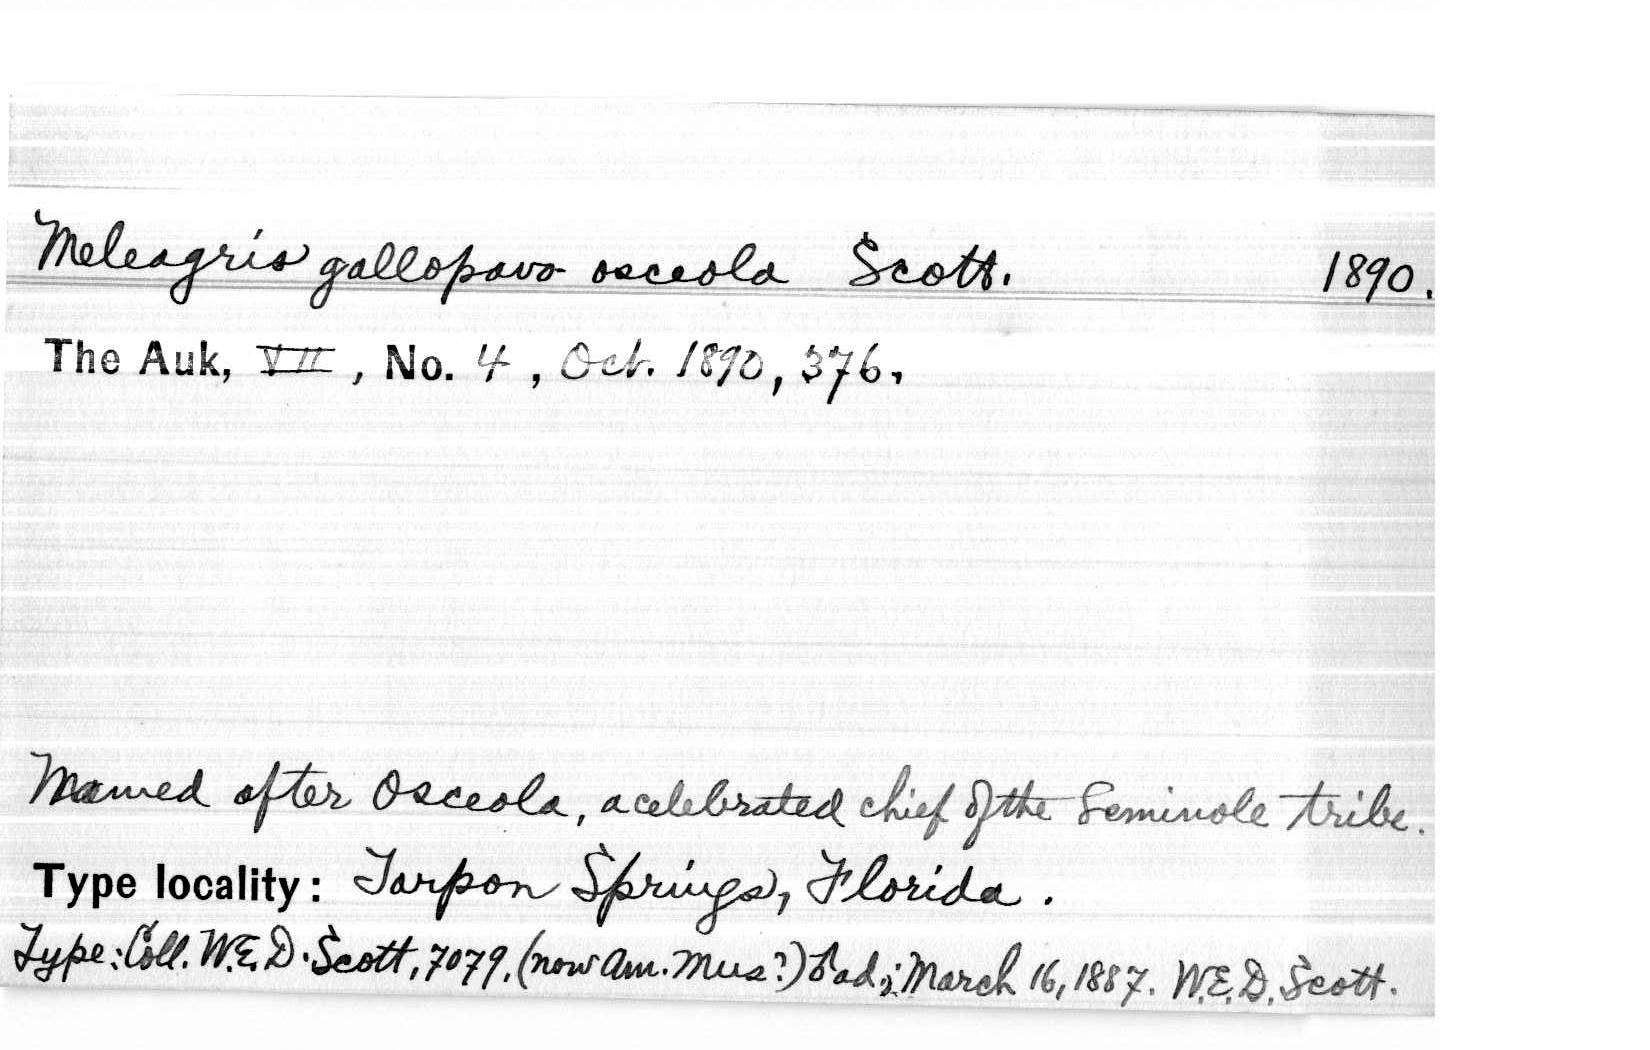 Meleagris gallopavo osceola Scott. 1890.
The Auk, VII, No. 4, Oct. 1890, 376.
Named after Osceola, a celebrated chief of the Seminole tribe.
Type locality: Tarpon Springs, Florida.
Type: Coll. W.E.D. Scott, 7079. (now Am. Mus?) ad; March 16, 1887. W.E.D. Scott.